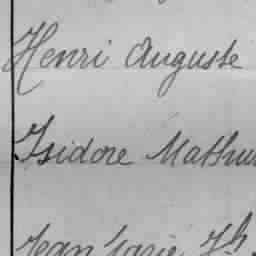 Henri Auguste
Isidore Mathu
Jean Marie Jh